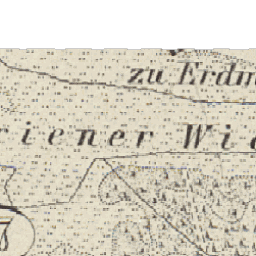 zu Erdm
riener Wie